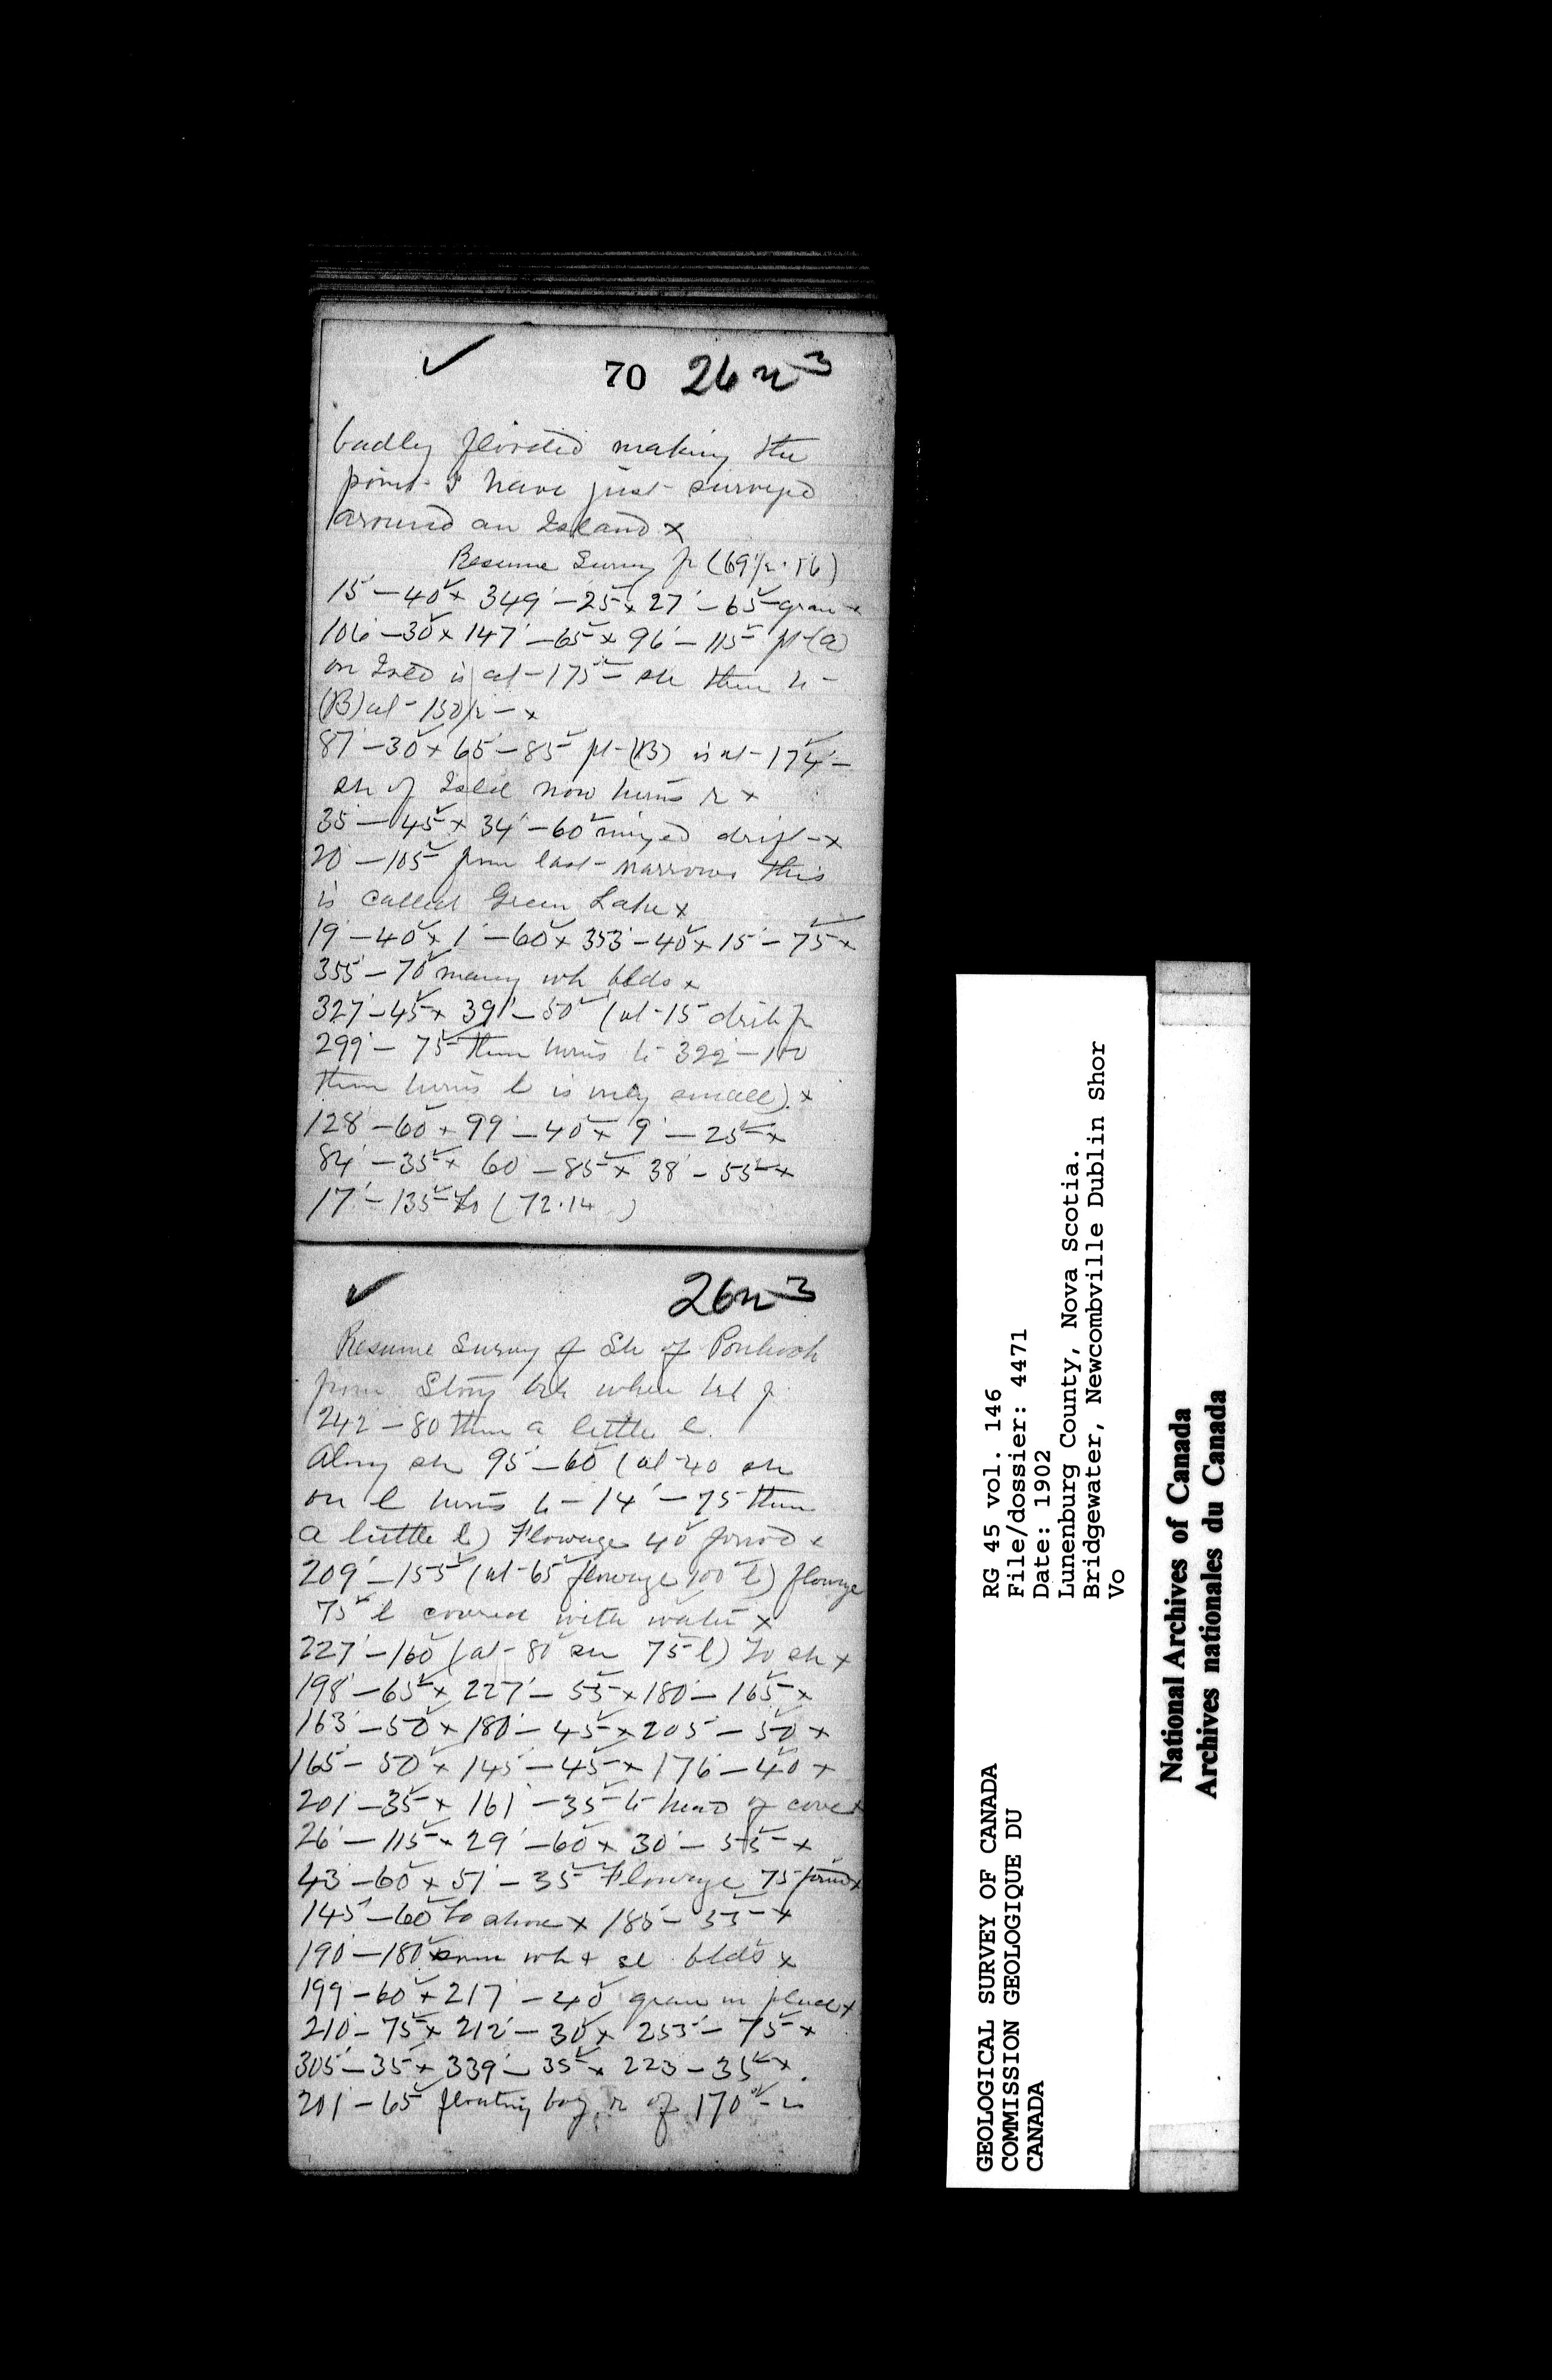 70 26n3
badly flooded making the
point I have just surveyed
around an Island x
Resume Survey fr (69½.56)
15' – 40 x 349' – 25 x 27' – 65 gran x
106' – 30 x 147' – 65 x 96' – 115 pt (a)
on Isld is at 175 – sh then to
(B) at
87' – 30 x 65' – 85 pt (B) is at 174' –
sh of Isld now turns r x
35' – 45 x 34' – 60 mixed drift x
20' – 105 from last narrows this
is called Green Lake x
19' – 40 x 1' – 60 x 353' – 40 x 15' – 75 x
355' – 70 many wh blds x
327' – 45 x 39' – 50 (at 15 ditch fr
299' – 75 then turns to 322' – 100
then turns l is very small) x
128' – 60 x 99' – 40 x 9' – 25 x
84' – 35 x 60' – 85 x 38' – 55 x
17' – 135 to (72.14)
26n3
Resume Survey of Sh of Ponhook
from Stony brk where brk fr
242' – 80 then a little l.
Along sh 95' – 60 (at 40 sh
on l turns to 14' – 75 then
a little l) Flowage 40 forwd x
209' – 155 (at 65 flowage 100 l) flowage
75 l covered with water x
227' – 160 (at 80 sh 75 l) to sh x
198' – 65 x 227' – 55 x 180' – 165 x
163' – 50 x 180' – 45 x 205' – 50 x
165' – 50 x 145' – 45 x 176' – 40 x
201' – 35 x 161' – 35 to head of cove x
26' – 115 x 29' – 60 x 30' – 55 x
43' – 60 x 51' – 35 Flowage 75 forwd x
145' – 60 to shore x 185' – 35 x
190' – 180 some wh + sl blds x
199' – 60 x 217' – 40 gran in place x
210' – 75 x 212' – 30 x 253' – 75 x
305' – 35 x 339' – 35 x 223' – 35 x
201' – 65 floating bog r of 170
GEOLOGICAL SURVEY OF CANADA
COMMISSION GEOLOGIQUE DU
CANADA
RG 45 vol. 146
File/dossier: 4471
Date: 1902
Lunenburg County, Nova Scotia.
Bridgewater, Newcombville Dublin Shor
Vo
National Archives of Canada
Archives nationales du Canada